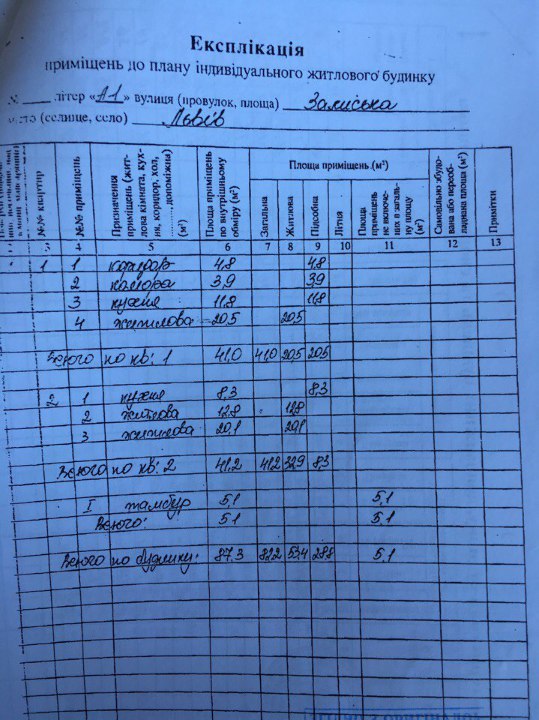 Експлікація
приміщень до плану індивідуального житлового будинку
№ ___ літер «А1» вулиця (провулок, площа) Заміська
місто (селище, село) Львів
№№ квартир
№№ приміщень
Призначення приміщень (житлова кімната, кухня, коридор, хол, ........, допоміжна) (м²)
Площа приміщень по внутрішньому обміру (м²)
Площа приміщень (м²)
Загальна
Житлова
Підсобна
Літня
Площа приміщень не включених в загальну площу (м²)
Самовільно збудована або переобладнана площа (м²)
Примітки
3 4 5 6 7 8 9 10 11 12 13
1 1 коридор 4,8 4,8
2 комора 3,9 3,9
3 кухня 11,8 11,8
4 житлова 20,5 20,5
Всього по кв: 1 41,0 41,0 20,5 20,5
2 1 кухня 8,3 8,3
2 житлова 12,8 12,8
3 житлова 20,1 20,1
Всього по кв: 2 41,2 41,2 32,9 8,3
I тамбур 5,1 5,1
Всього: 5,1 5,1
Всього по будинку: 87,3 82,2 53,4 28,8 5,1